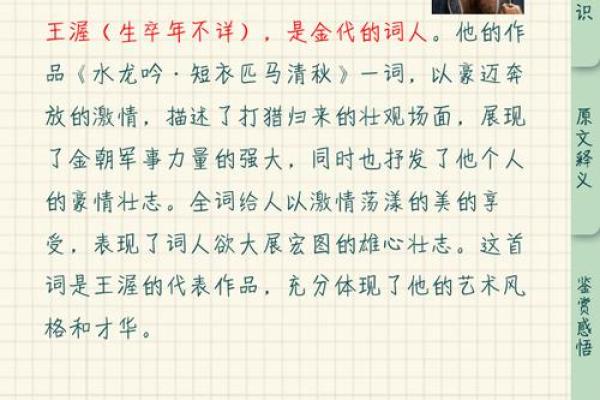 王渥（生卒年不详），是金代的词人。他的作
品《水龙吟·短衣匹马清秋》一词，以豪迈奔
放的激情，描述了打猎归来的壮观场面，展现
了金朝军事力量的强大，同时也抒发了他个人
的豪情壮志。全词给人以激情荡漾的美的享
受，表现了词人欲大展宏图的雄心壮志。这首
词是王渥的代表作品，充分体现了他的艺术风
格和才华。
识
原文释义
鉴赏感悟